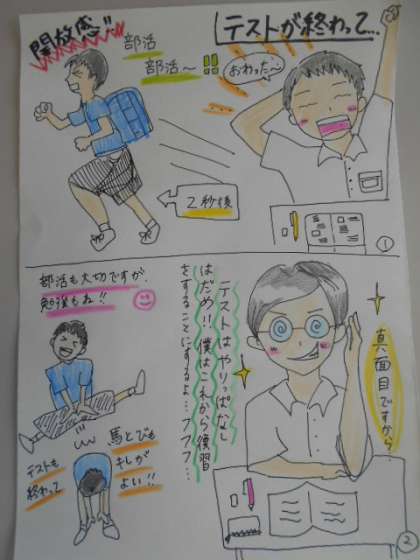 テストが終わって…
おわった〜
①
開放感!!
部活
部活〜!!
2秒後
真面目ですから
テストはやりっぱなし
はだめ!!僕はこれから復習
をすることにするよ…フフフ…
②
部活も大切ですが、
勉強もね!!
テストも
終わって
馬とびも
キレが
よい!!